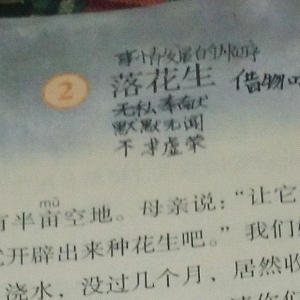 事情发展的顺序
2 落花生 借物
无私奉献
默默无闻
不求虚荣
mǔ
有半亩空地。母亲说：“让它
开辟出来种花生吧。”我们
浇水，没过几个月，居然收